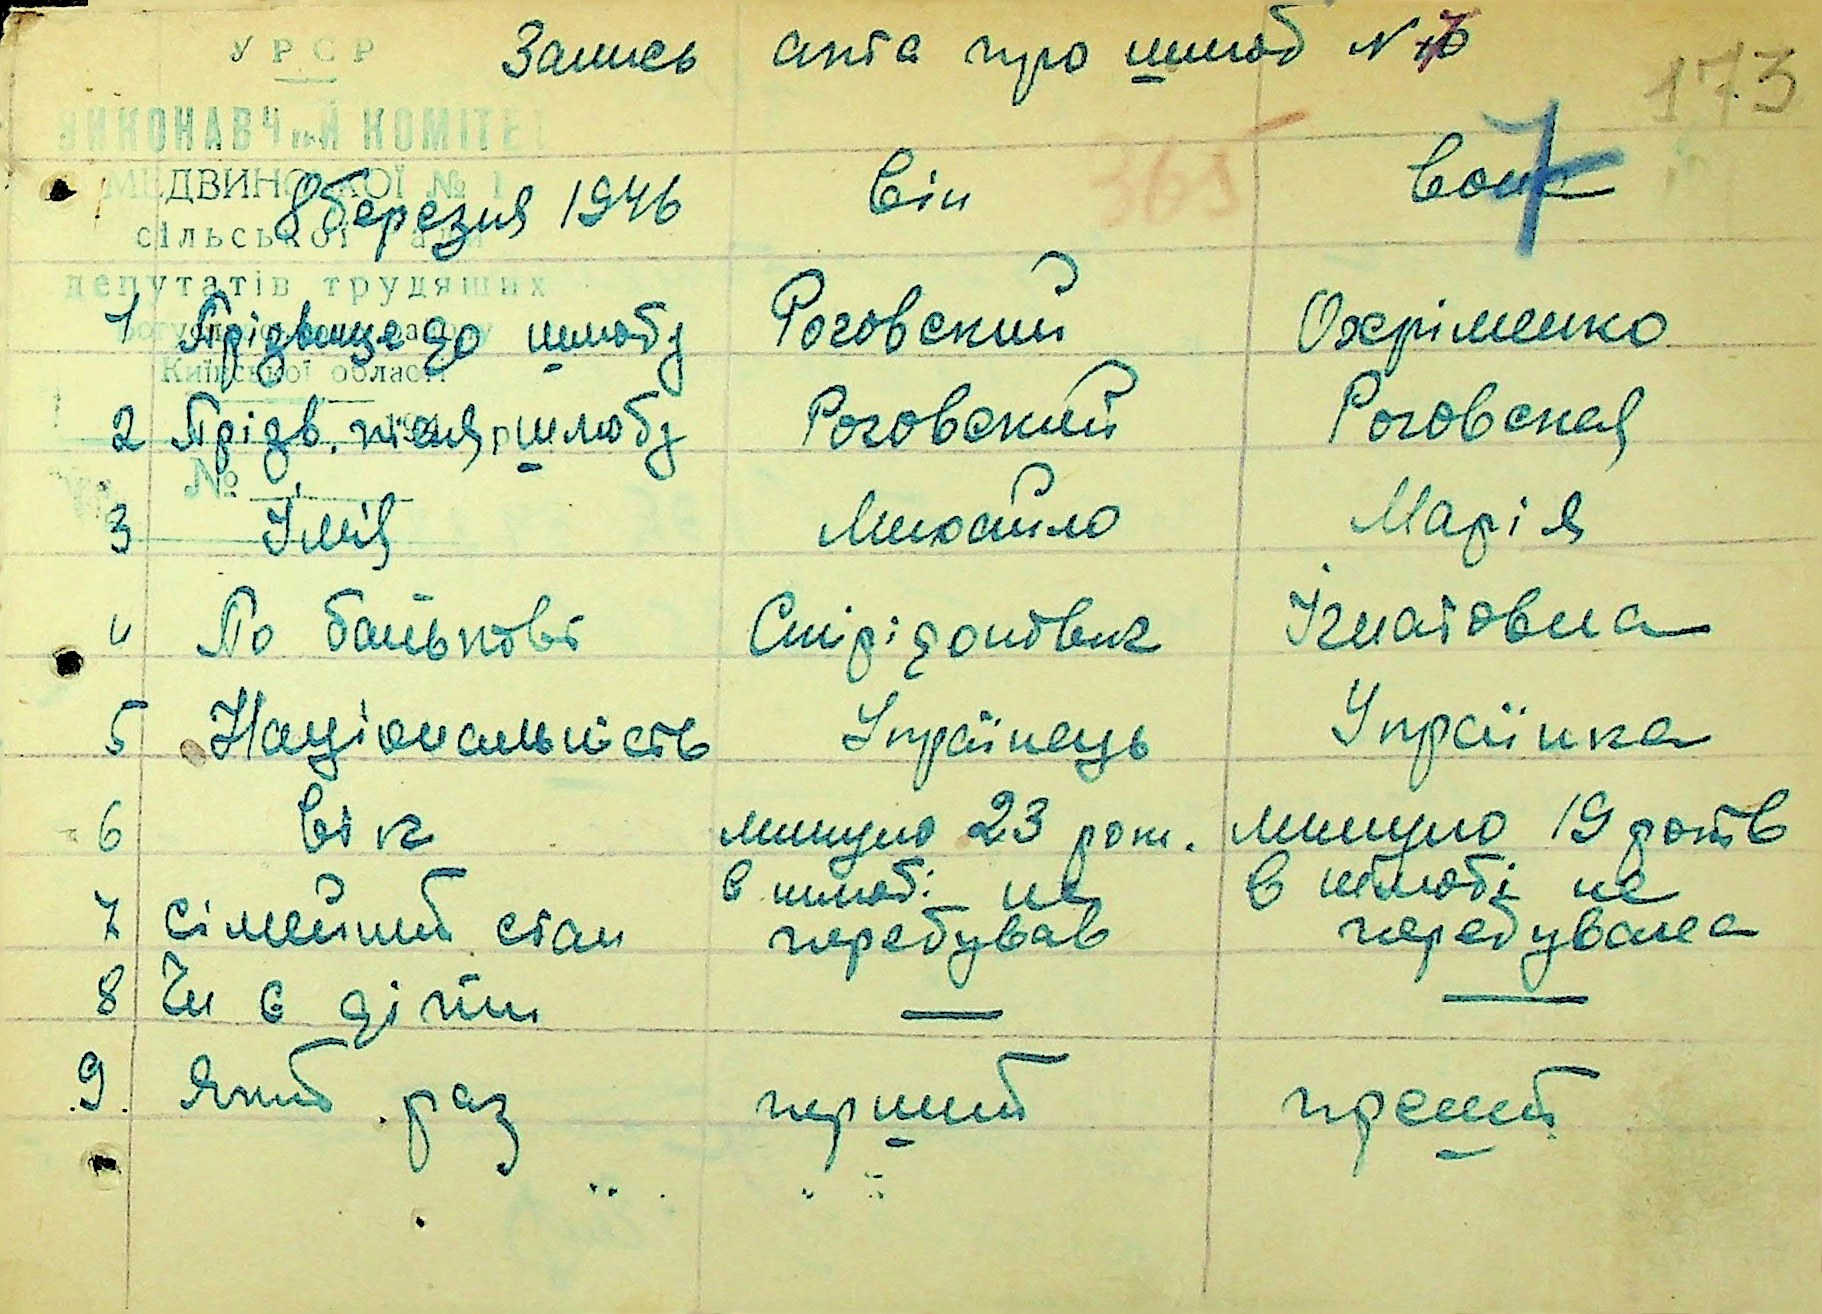 УРСР
Запись акта про шлюб №
173
ВИКОНАВЧИЙ КОМІТЕТ
МЕДВИНСЬКОЇ № 1
сільської ради
депутатів трудящих
Київської області
№
365
7
8 березня 1946 Він Вона
1 Прізвище до шлюбу Роговский Охріменко
2 Прізв. після шлюбу Роговский Роговская
3 Імія Михайло Марія
4 По батькові Спірідонович Ігнатовна
5 Національність Українець Українка
6 Вік минуло 23 рок. минуло 19 років
7 Сімейний стан в шлюбі не перебував в шлюбі не перебувала
8 Чи є діти — —
9. Який раз перший прешй